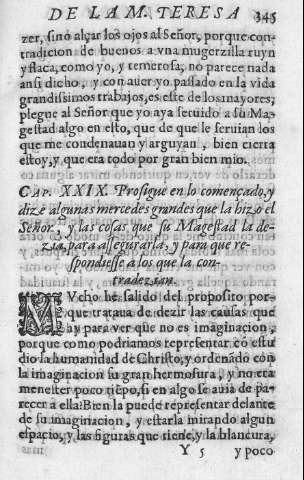 DE LA M. TERESA 345
zer, sino alçar los ojos al Señor, porque con-
tradicion de buenos a vna mugerzilla ruyn
y flaca, como yo, y temerosa, no parece nada
ansi dicho, y con auer yo passado en la vida
grandissimos trabajos, es este de los mayores,
plegue al Señor que yo aya seruido a su Ma-
gestad algo en esto, que de que le seruian los
que me condenauan y arguyan, bien cierta
estoy, y que era todo por gran bien mio.
CAP. XXIX. Prosigue en lo començado, y
dize algunas mercedes grandes que la hizo el
Señor, y las cosas que su Magestad la de-
zia, para assegurarla, y para que re-
spondiesse a los que la con-
tradezian.
MVcho he salido del proposito, por-
que trataua de dezir las causas que
ay para ver que no es imaginacion,
porque como podriamos representar cõ estu
dio la humanidad de Christo, y ordenado con
la imaginacion su gran hermosura, y no era
menester poco tiẽpo, si en algo se auia de pa-
recer a ella: Bien la puede representar delante
de su imaginacion, y estarla mirando algun
espacio, y las figuras que tiene, y la blancura,
Y 5 y poco